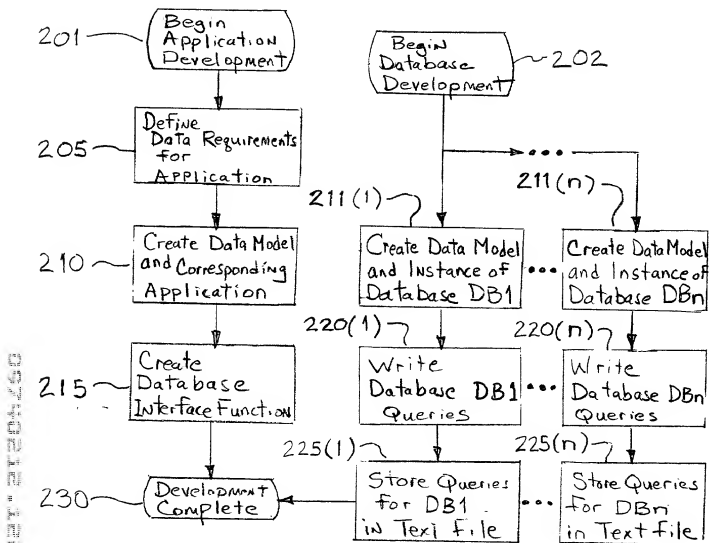 201
Begin
Application
Development
Begin
Database
Development
202
205
Define
Data Requirements
for
Application
211(1)
211(n)
210
Create Data Model
and Corresponding
Application
Create Data Model
and Instance of
Database DB1
...
Create Data Model
and Instance of
Database DBn
220(1)
220(n)
215
Create
Database
Interface Function
Write
Database DB1
Queries
...
Write
Database DBn
Queries
225(1)
225(n)
230
Development
Complete
Store Queries
for DB1
in Text file
...
Store Queries
for DBn
in Text file